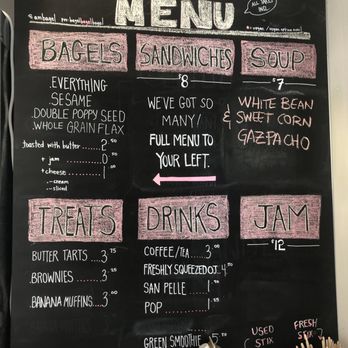 MENU
BAGELS
.EVERYTHING
SESAME
.DOUBLE POPPY SEED
.WHOLE GRAIN FLAX
toasted with butter.....2.50
+ jam .....0.50
+ cheese.....1.00
-- cream
-- sliced
SANDWICHES
$8
WE'VE GOT SO
MANY!
FULL MENU TO
YOUR LEFT.
SOUP
$7
WHITE BEAN
& SWEET CORN
GAZPACHO
TREATS
BUTTER TARTS....3.75
.BROWNIES ......3.25
.BANANA MUFFINS...3.00
DRINKS
COFFEE/TEA....3.00
FRESHLY SQUEEZED OJ..4.50
SAN PELLE .....1.50
POP .......1.50
GREEN SMOOTHIE
JAM
$12
USED
STIX
FRESH
STIX